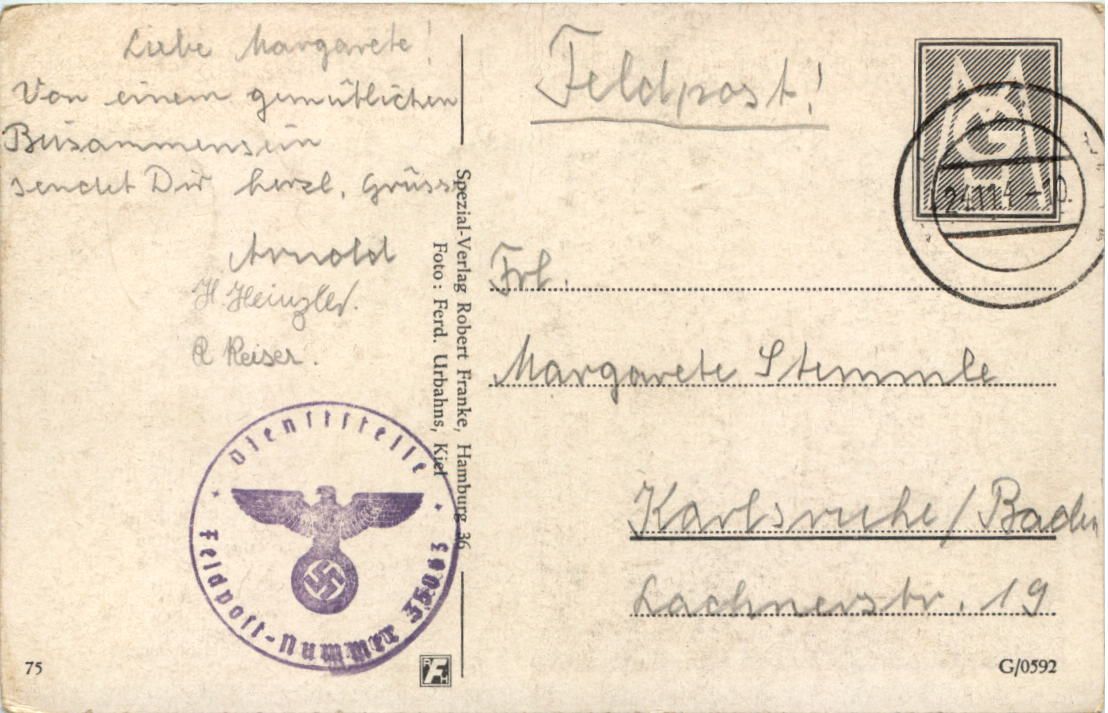 Liebe Margarete!
Von einem gemütlichen
Beisammensein
sendet Dir herzl. Grüsse
Arnold
H Heinzler.
R Reiser.
Feldpost!
24.11.4 -10.
Frl.
Margarete Stemmle
Karlsruhe/Baden
Lachnerstr. 19
Spezial-Verlag Robert Franke, Hamburg 36
Foto: Ferd. Urbahns, Kiel
Dienststelle
Feldpost-Nummer
75
G/0592